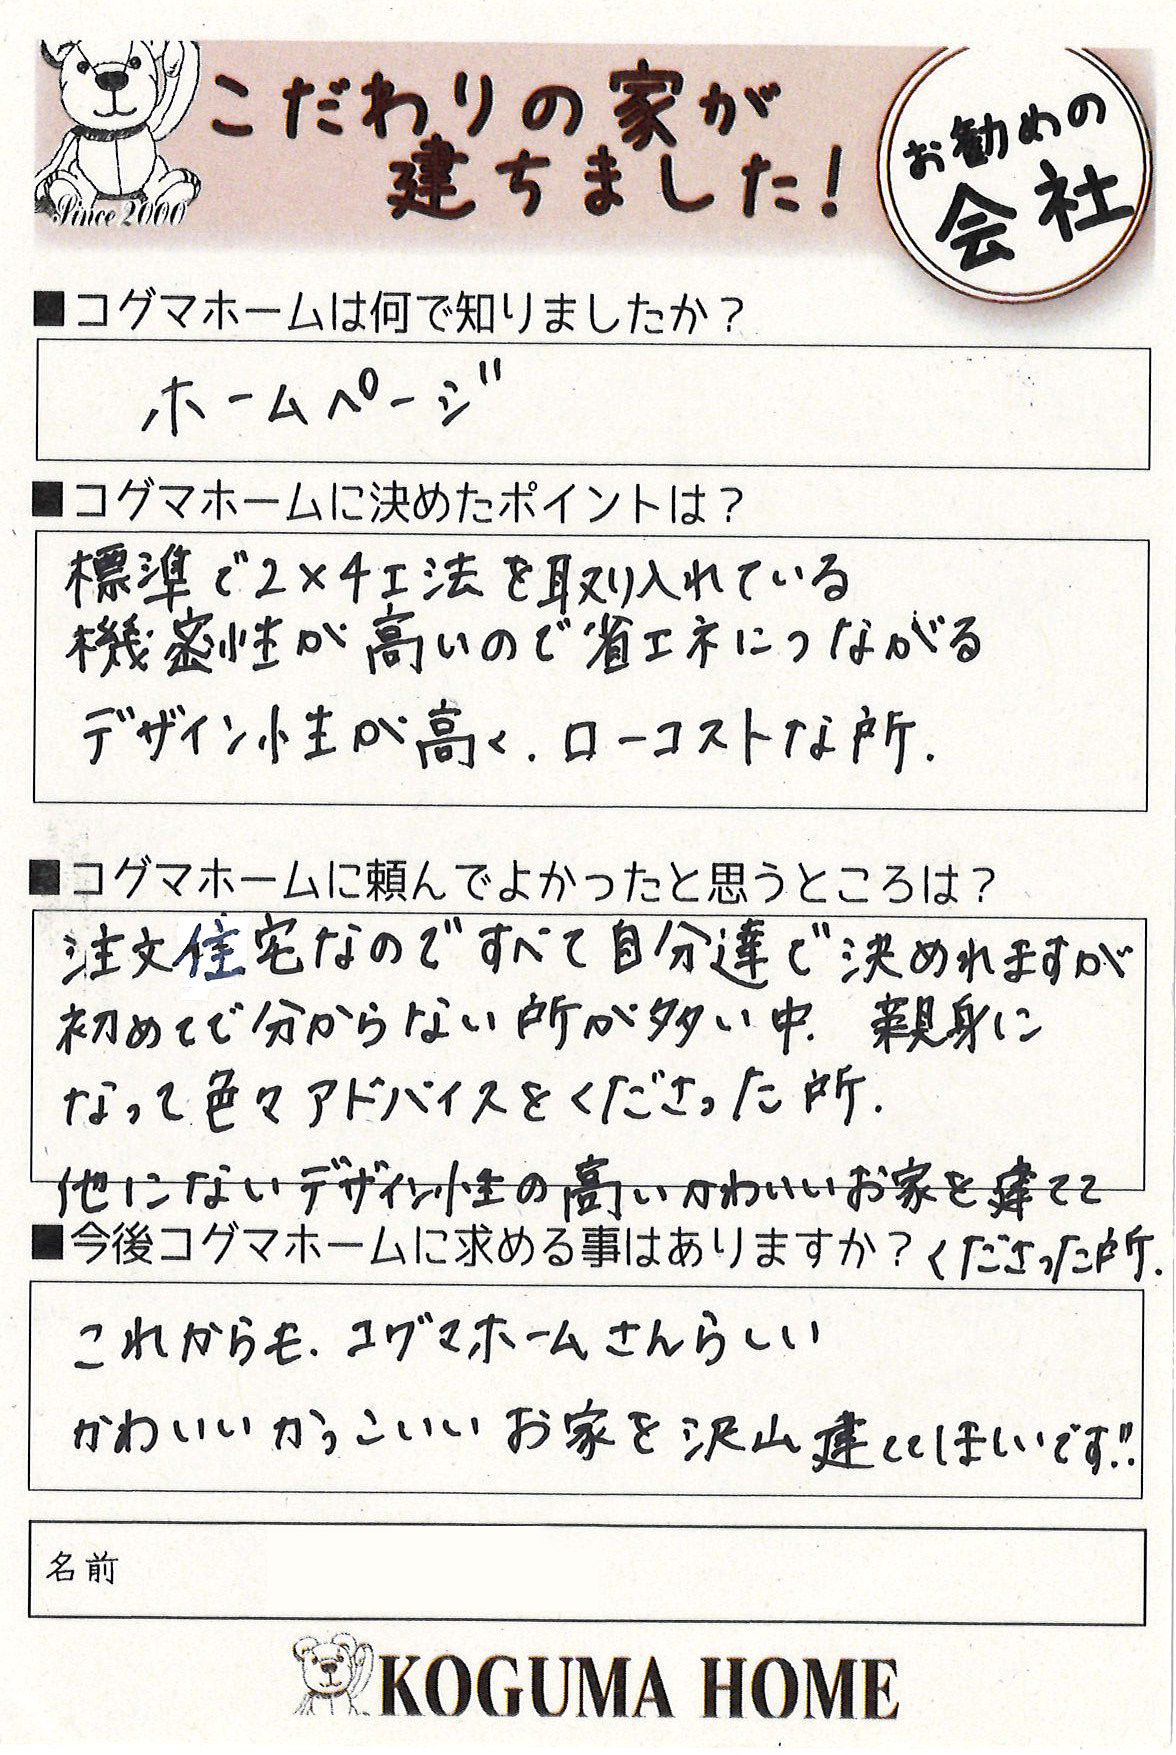 こだわりの家が
建ちました!
お勧めの
会社
Since 2000
■コグマホームは何で知りましたか?
ホームページ
■コグマホームに決めたポイントは?
標準で2×4工法を取り入れている
機密性が高いので省エネにつながる
デザイン性が高く、ローコストな所.
■コグマホームに頼んでよかったと思うところは?
注文住宅なのですべて自分達で決めれますが
初めてで分からない所が多い中、親身に
なって色々アドバイスをくださった所.
他にないデザイン性の高いかわいいお家を建てて
くださった所.
■今後コグマホームに求める事はありますか?
これからも、コグマホームさんらしい
かわいいかっこいいお家を沢山建ててほしいです!!
名前
KOGUMA HOME